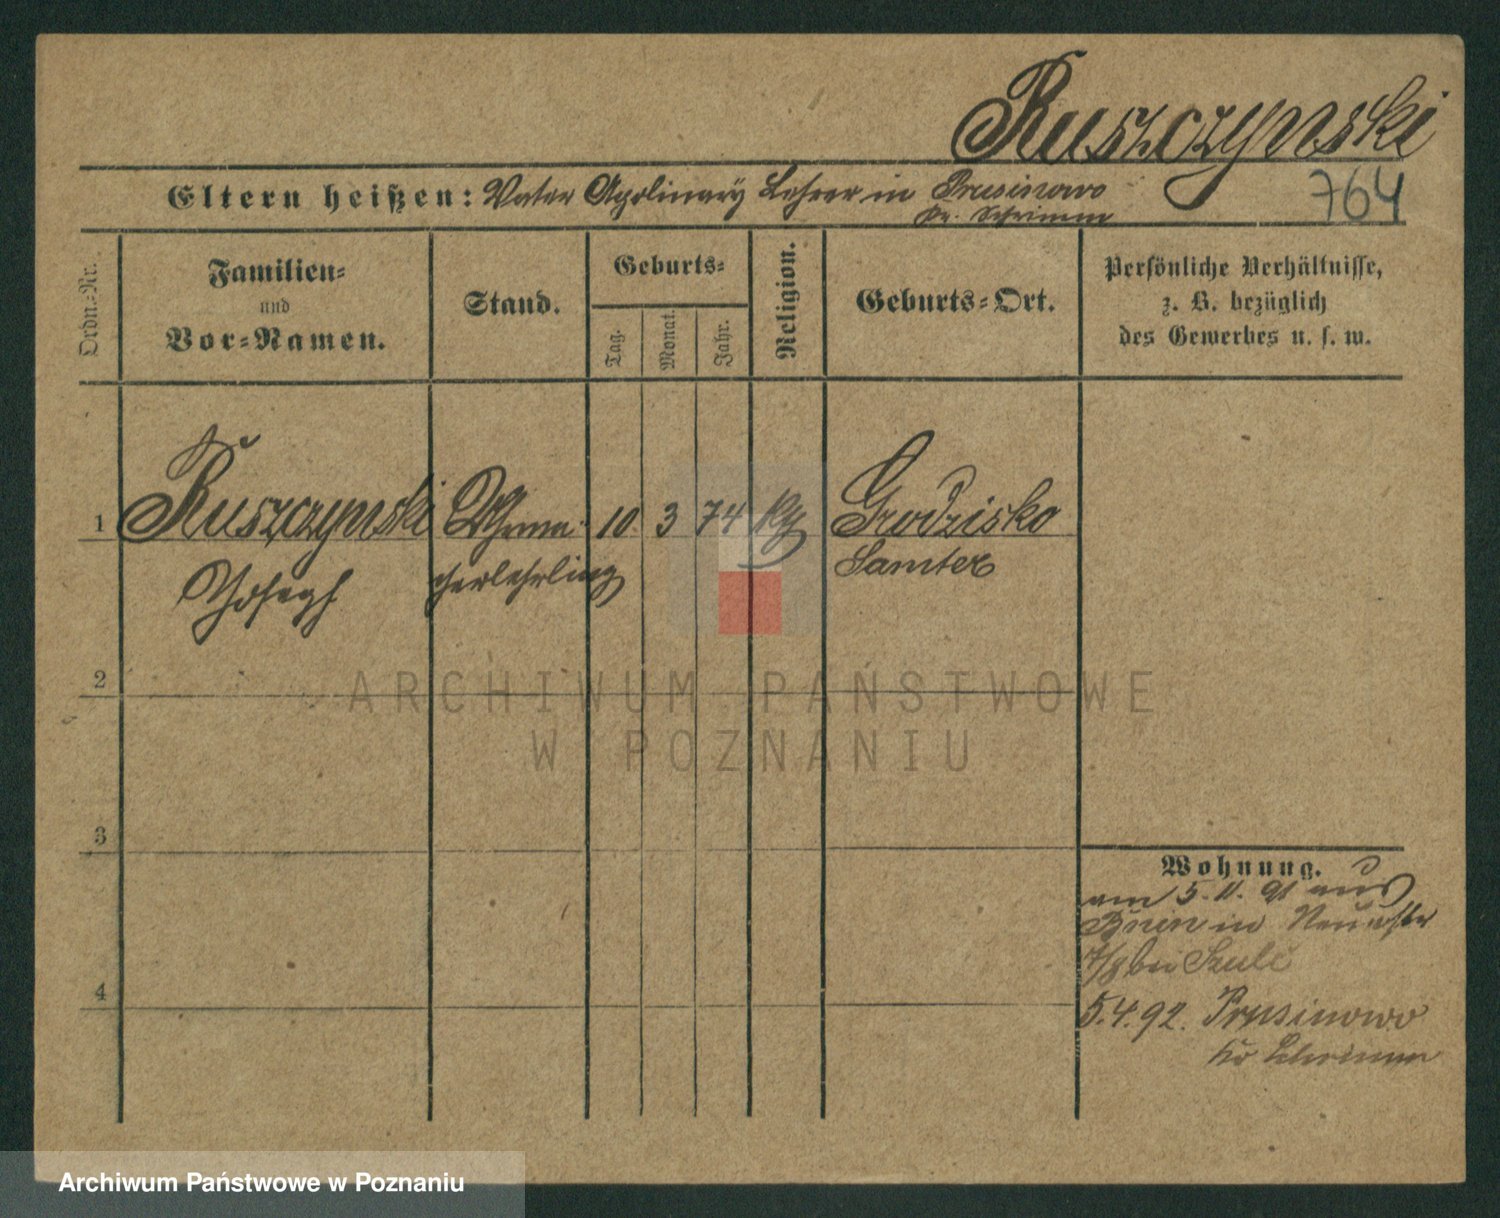 Ruszczynski
Eltern heißen: Vater Apolinary Lehrer in Prusinowo
Kr. Schrimm
764
Ordn.-Nr.
Familien-
und
Vor-Namen.
Stand.
Geburts-
Tag.
Monat.
Jahr.
Religion.
Geburts-Ort.
Persönliche Verhältnisse,
z. B. bezüglich
des Gewerbes u. s. w.
1 Ruszczynski Uhrma- 10 3 74 Grodzisko
Joseph cherlehrling Samter
2
ARCHIWUM PAŃSTWOWE
W POZNANIU
3
Wohnung.
am 5.11.91 aus
Bnin in
7/8 bei
4
5.4.92. Prusinowo
Kr Schrimm
Archiwum Państwowe w Poznaniu